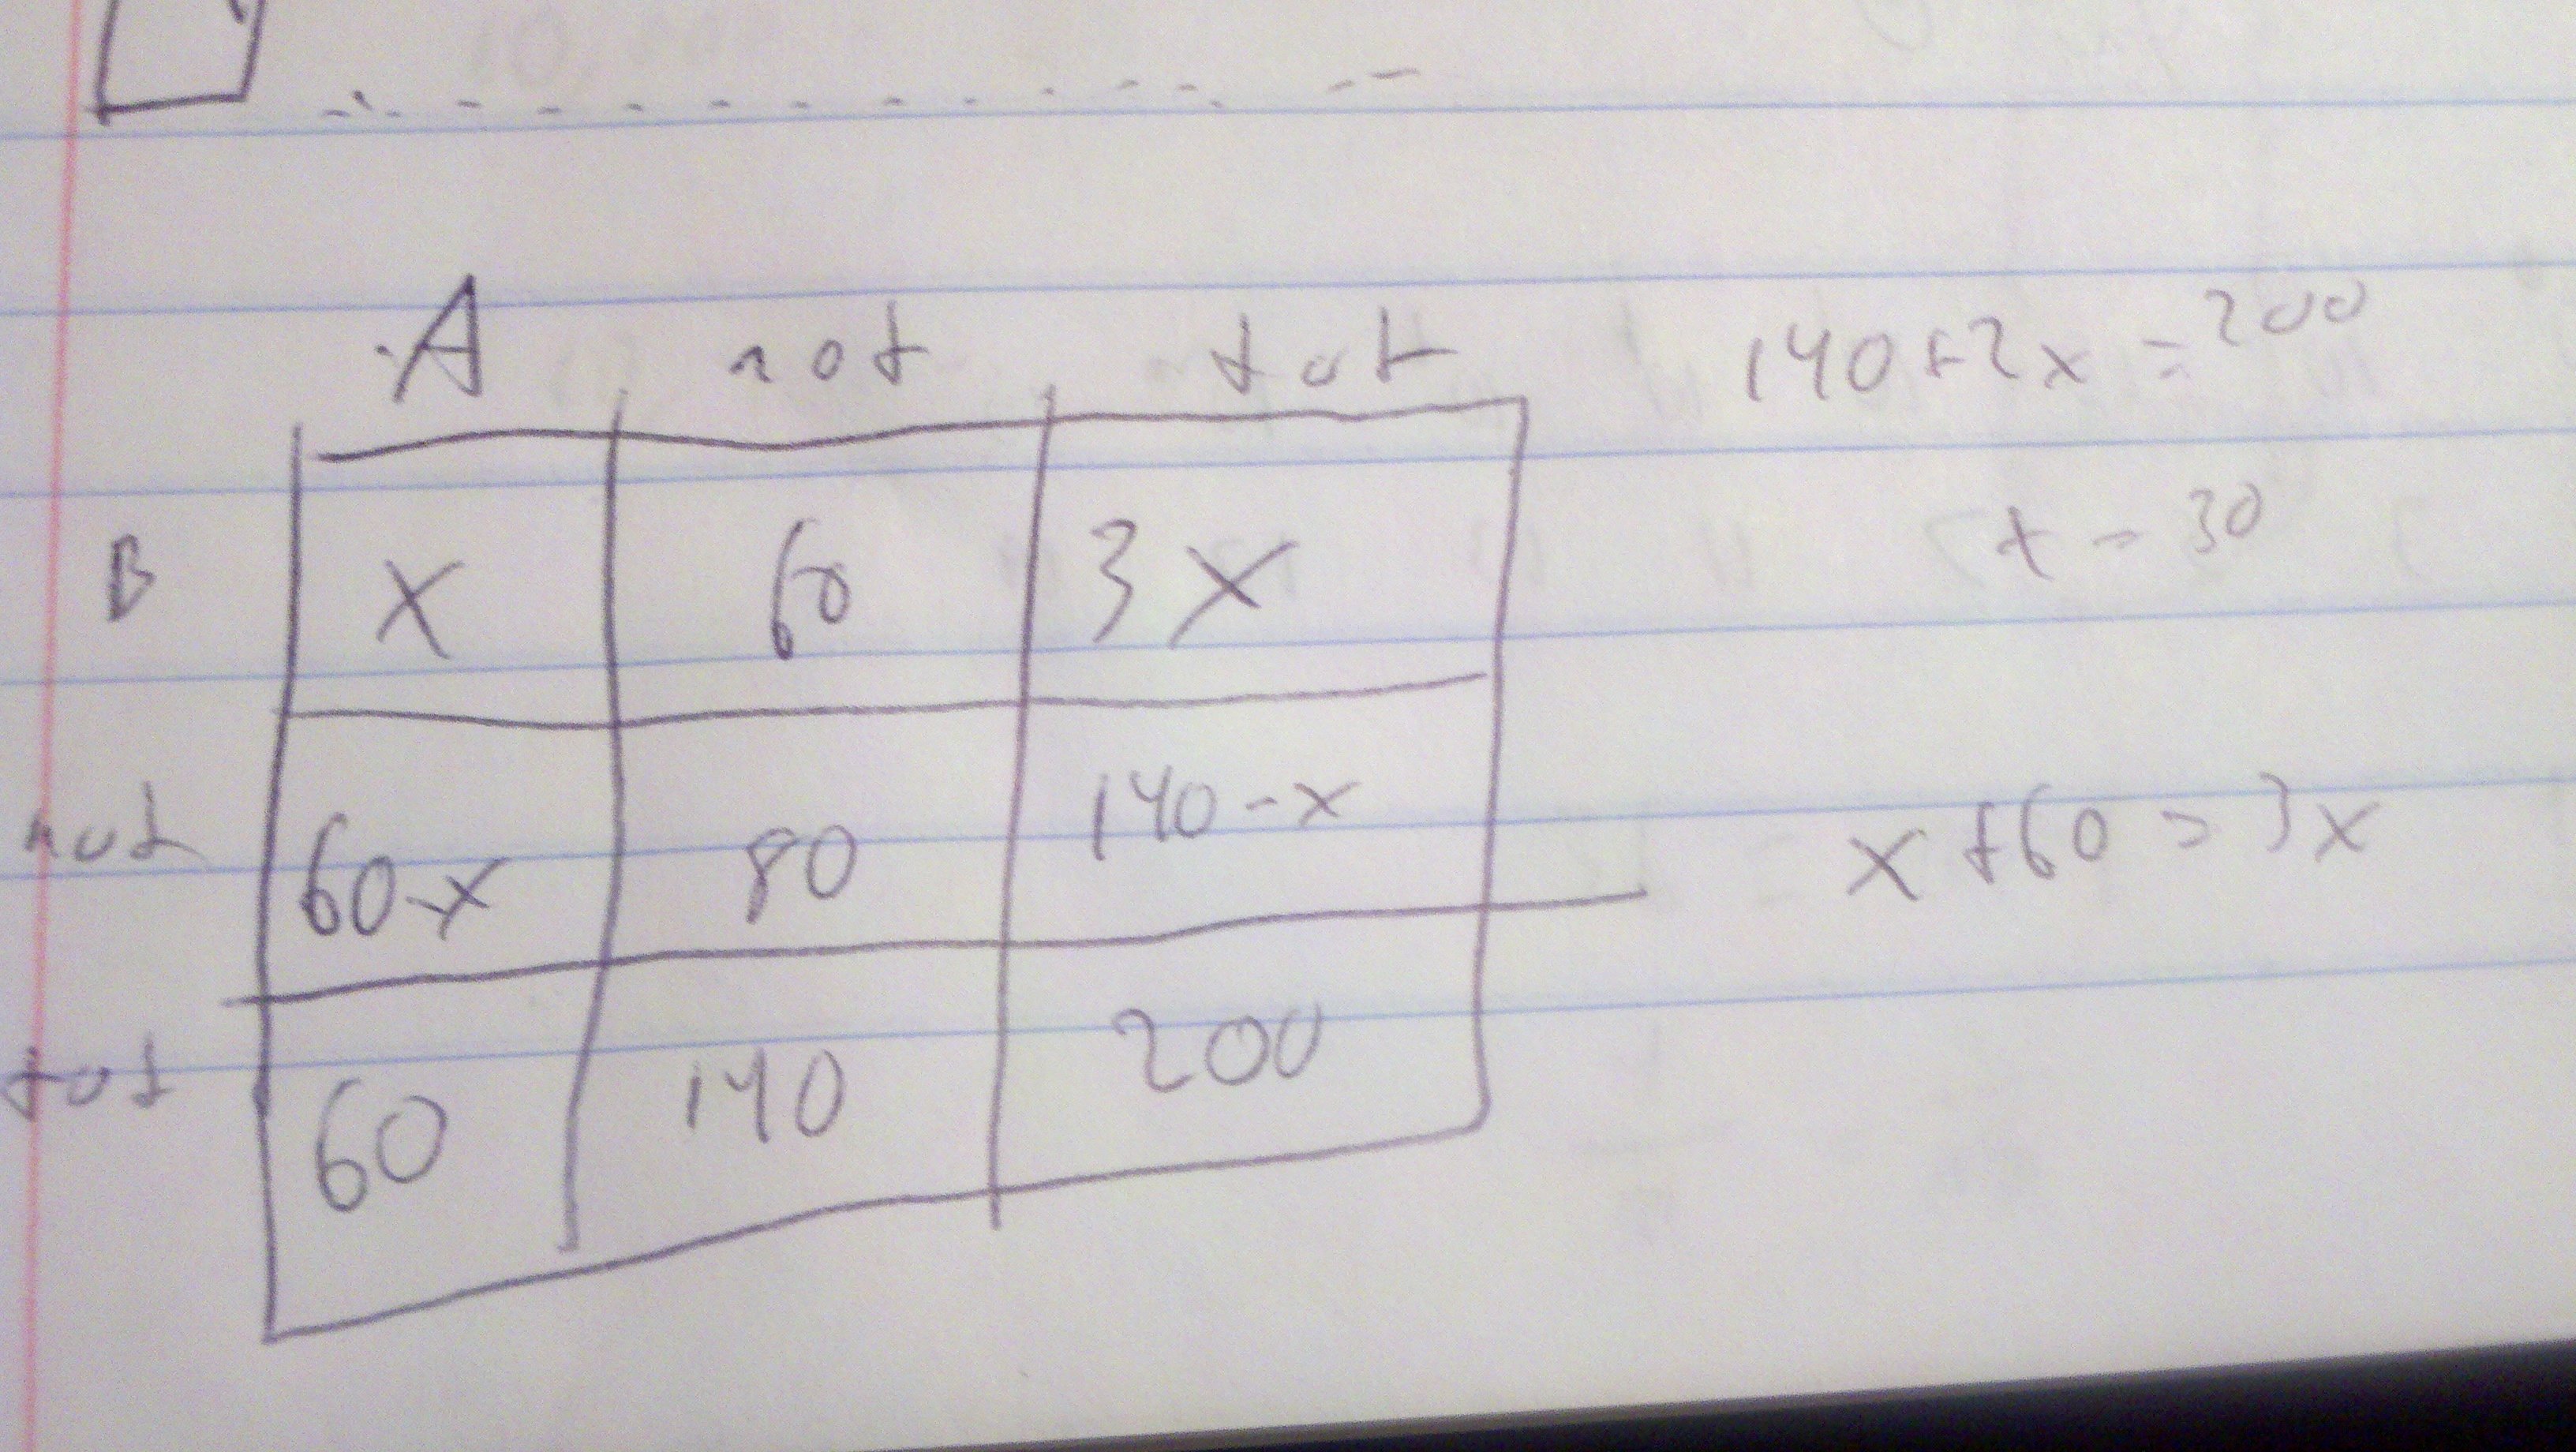 A not tot 140+2x=200
B x 60 3x x=30
not 60-x 80 140-x x+60=3x
tot 60 140 200